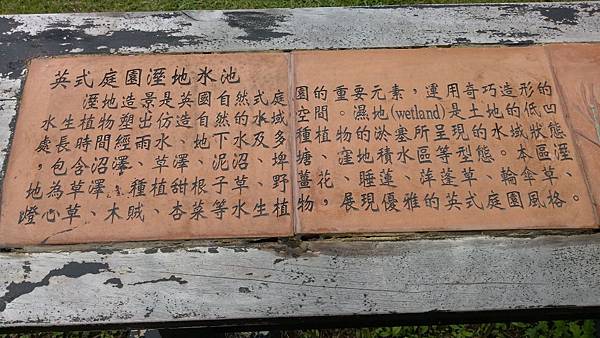 英式庭園溼地水池
溼地造景是英國自然式庭園的重要元素，運用奇巧造形的
水生植物塑出仿造自然的水域空間。濕地(wetland)是土地的低凹
處長時間經雨水、地下水及多種植物的淤塞所呈現的水域狀態
，包含沼澤、草澤、泥沼、埤塘、窪地積水區等型態。本區溼
地為草澤，種植甜根子草、野薑花、睡蓮、萍蓬草、輪傘草、
燈心草、木賊、杏菜等水生植物，展現優雅的英式庭園風格。